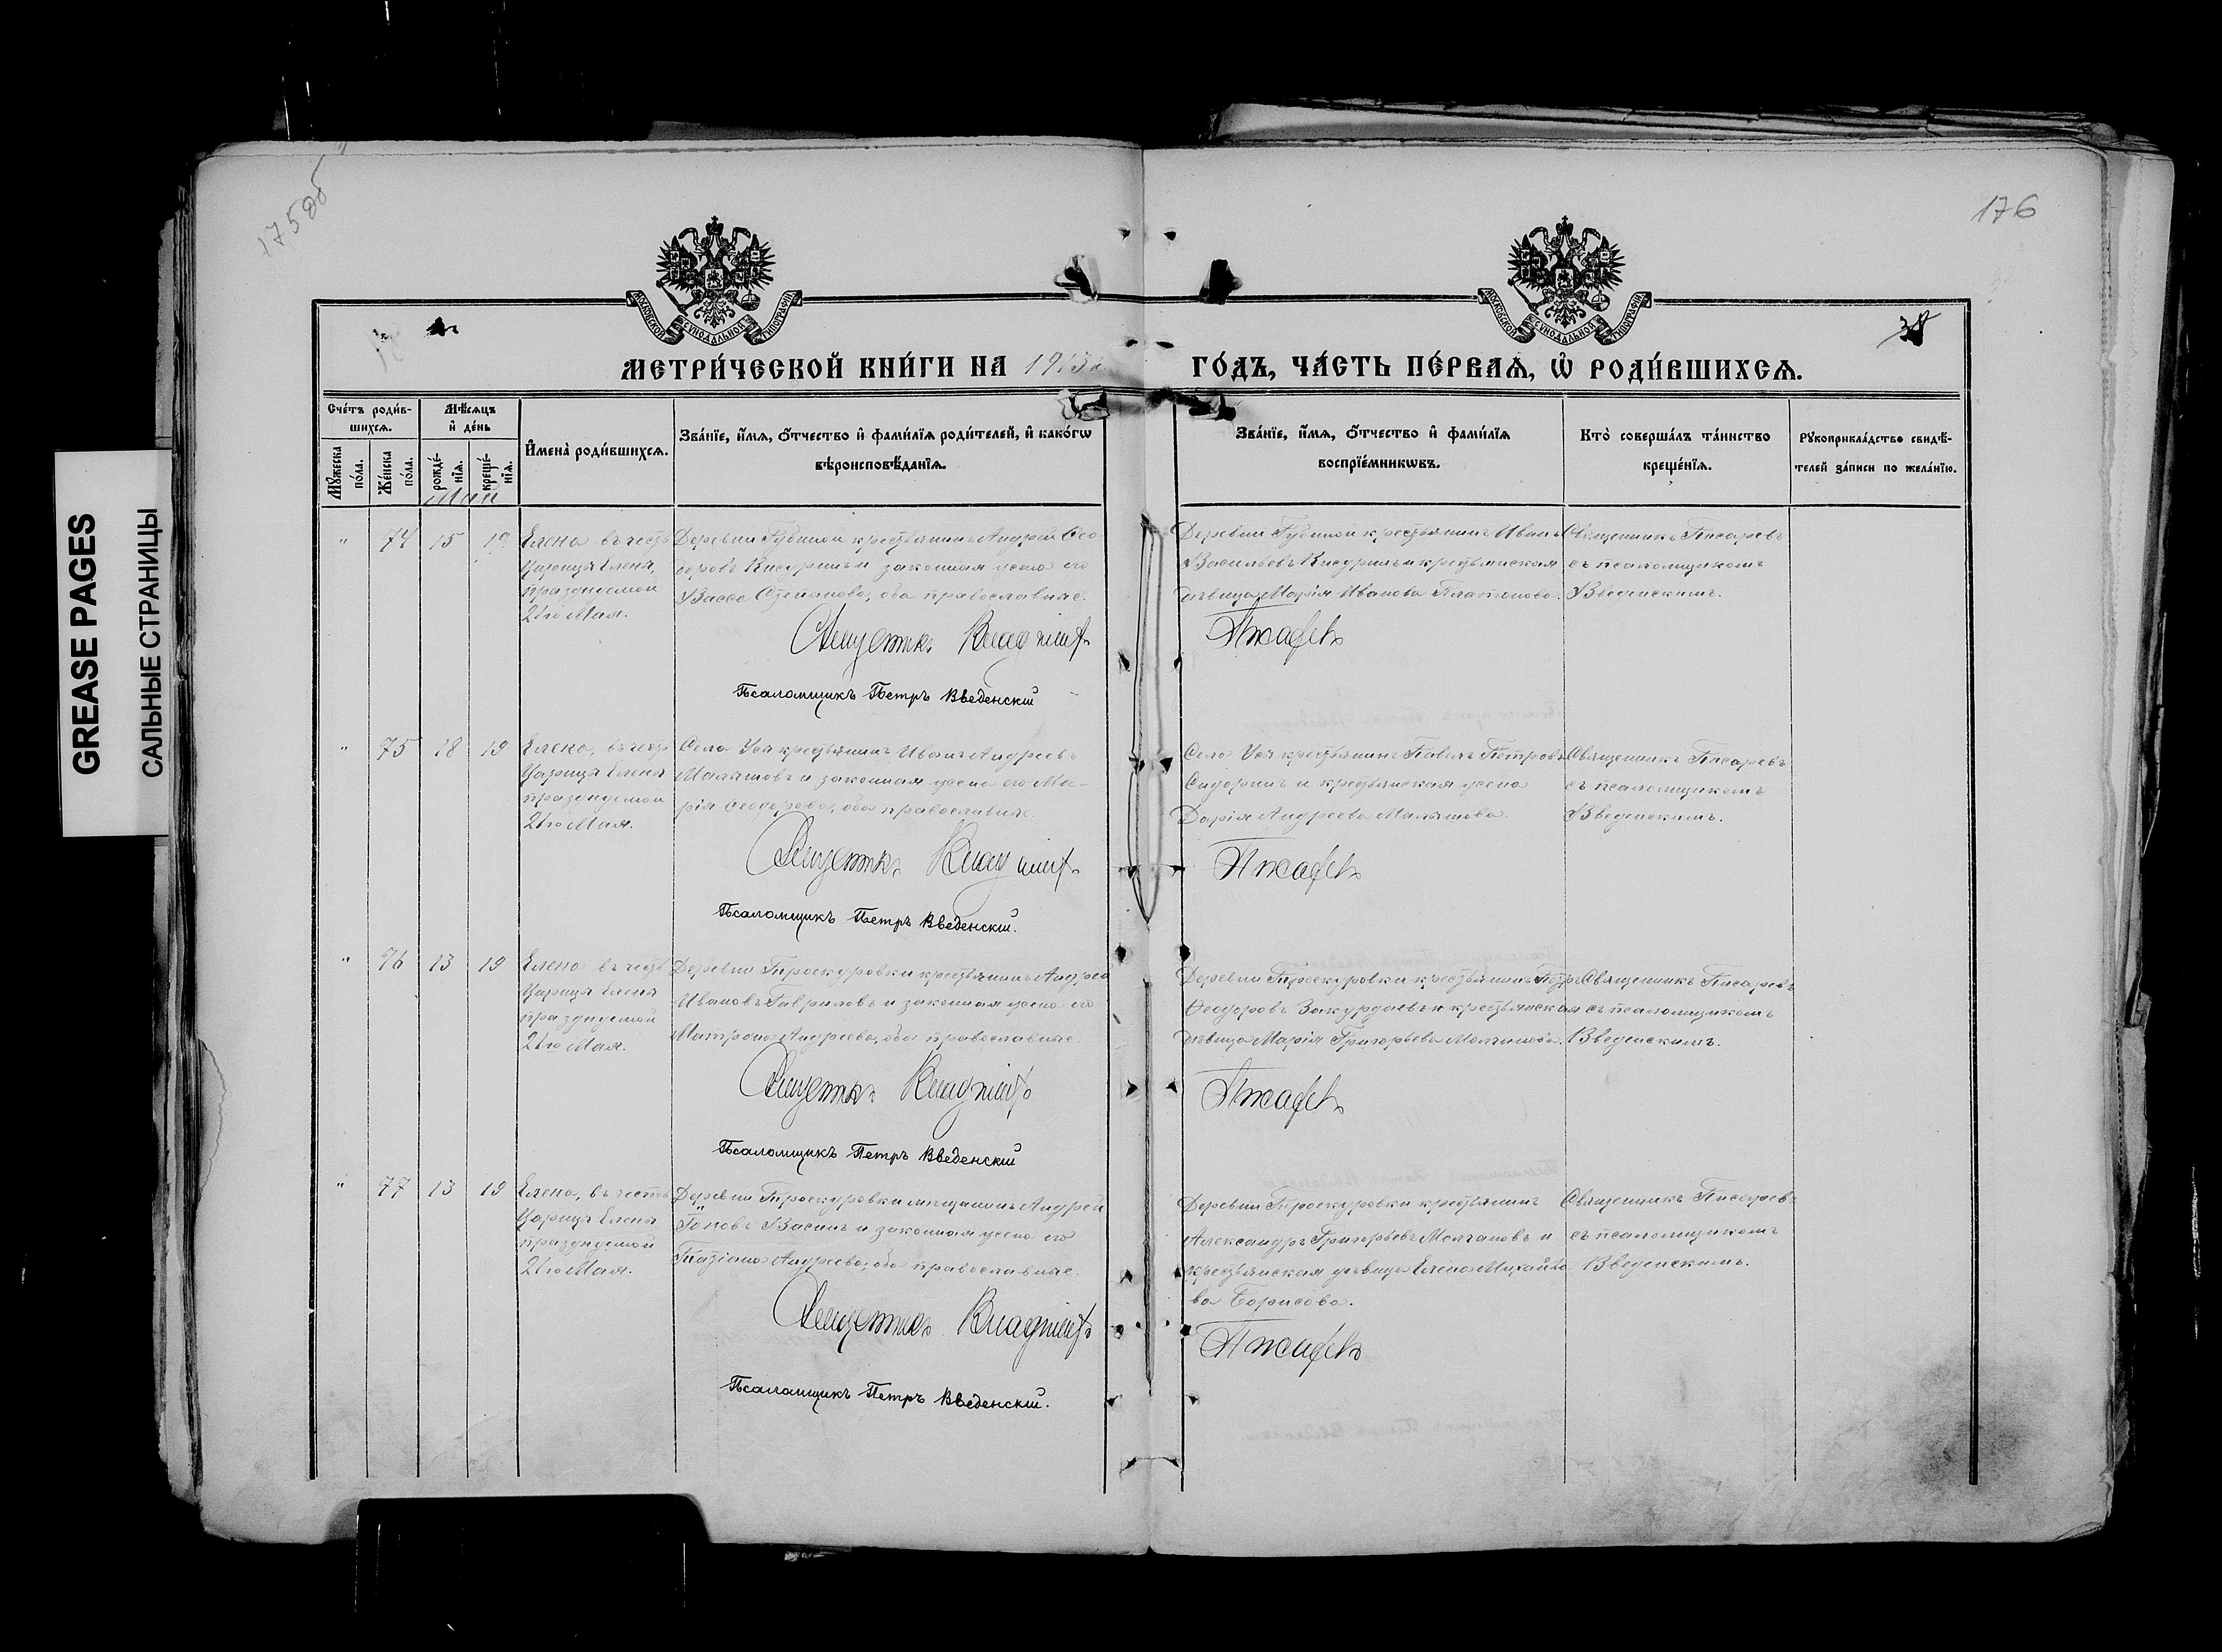 GREASE PAGES
САЛЬНЫЕ СТРАНИЦЫ
175 об
176
МОСКОВСКОЙ СѴНОДАЛЬНОЙ ТИПОГРАФІИ
МОСКОВСКОЙ СѴНОДАЛЬНОЙ ТИПОГРАФІИ
38
МЕТРИ́ЧЕСКОЙ КНИ́ГИ НА 1913 ГО́ДЪ, ЧА́СТЬ ПЕ́РВАѦ, Ѡ҆ РОДИ́ВШИХСѦ.
Сче́тъ роди́в-
шихсѧ.
Мѣ́сѧцъ
и҆ де́нь
Мꙋ́жеска
по́ла.
Же́нска
по́ла.
рожде́-
нїѧ.
креще́-
нїѧ.
И҆мена̀ роди́вшихсѧ.
Зва́нїе, и҆́мѧ, ѻ҆́тчество и҆ фами́лїѧ роди́телей, и҆ како́гѡ
вѣроисповѣ́данїѧ.
Зва́нїе, и҆́мѧ, ѻ҆́тчество и҆ фами́лїѧ
воспрїе́мникѡвъ.
Кто̀ соверша́лъ та́инство
креще́нїѧ.
Рꙋкоприкла́дство свидѣ́-
телей за́писи по жела́нїю.
Май
" 74 15 19
Елена въ честь
Царицы Елены,
празднуемой
21го Мая.
Деревни Губиной крестьянинъ Андрей Ѳео
доровъ и законная жена его
Васса Стефанова, оба православные.
Псаломщикъ Петръ Введенскій
Деревни Губиной крестьянинъ Иванъ
Васильевъ и крестьянская
дѣвица Марія Иванова Платонова.
Священникъ Писаревъ
съ псаломщикомъ
Введенскимъ.
" 75 18 19
Елена, въ честь
Царицы Елены
празднуемой
21го Мая.
Села Уса крестьянинъ Иванъ Андреевъ
Малышовъ и законная жена его Ма-
рія Ѳеодорова, оба православные.
Псаломщикъ Петръ Введенскій.
Села Уса крестьянинъ Павелъ Петровъ
Сидоринъ и крестьянская жена
Дарія Андреева Малышова.
Священникъ Писаревъ
съ псаломщикомъ
Введенскимъ.
" 76 13 19
Елена въ честь
Царицы Елены
празднуемой
21го Мая.
Деревни Проскуровки крестьянинъ Андрей
Ивановъ Гавриловъ и законная жена его
Матрона Андреева, оба православные.
Псаломщикъ Петръ Введенскій
Деревни Проскуровки крестьянинъ Петръ
Ѳеодоровъ Закурдаевъ и крестьянская
дѣвица Марія Григорьева Молчанова.
Священникъ Писаревъ
съ псаломщикомъ
Введенскимъ.
" 77 13 19
Елена, въ честь
Царицы Елены
празднуемой
21го Мая.
Деревни Проскуровки мѣщанинъ Андрей
и законная жена его
Андреева, оба православные.
Псаломщикъ Петръ Введенскій.
Деревни Проскуровки крестьянинъ
Александръ Григорьевъ Молчановъ и
крестьянская дѣвица Елена Михайло
ва Борисова.
Священникъ Писаревъ
съ псаломщикомъ
Введенскимъ.